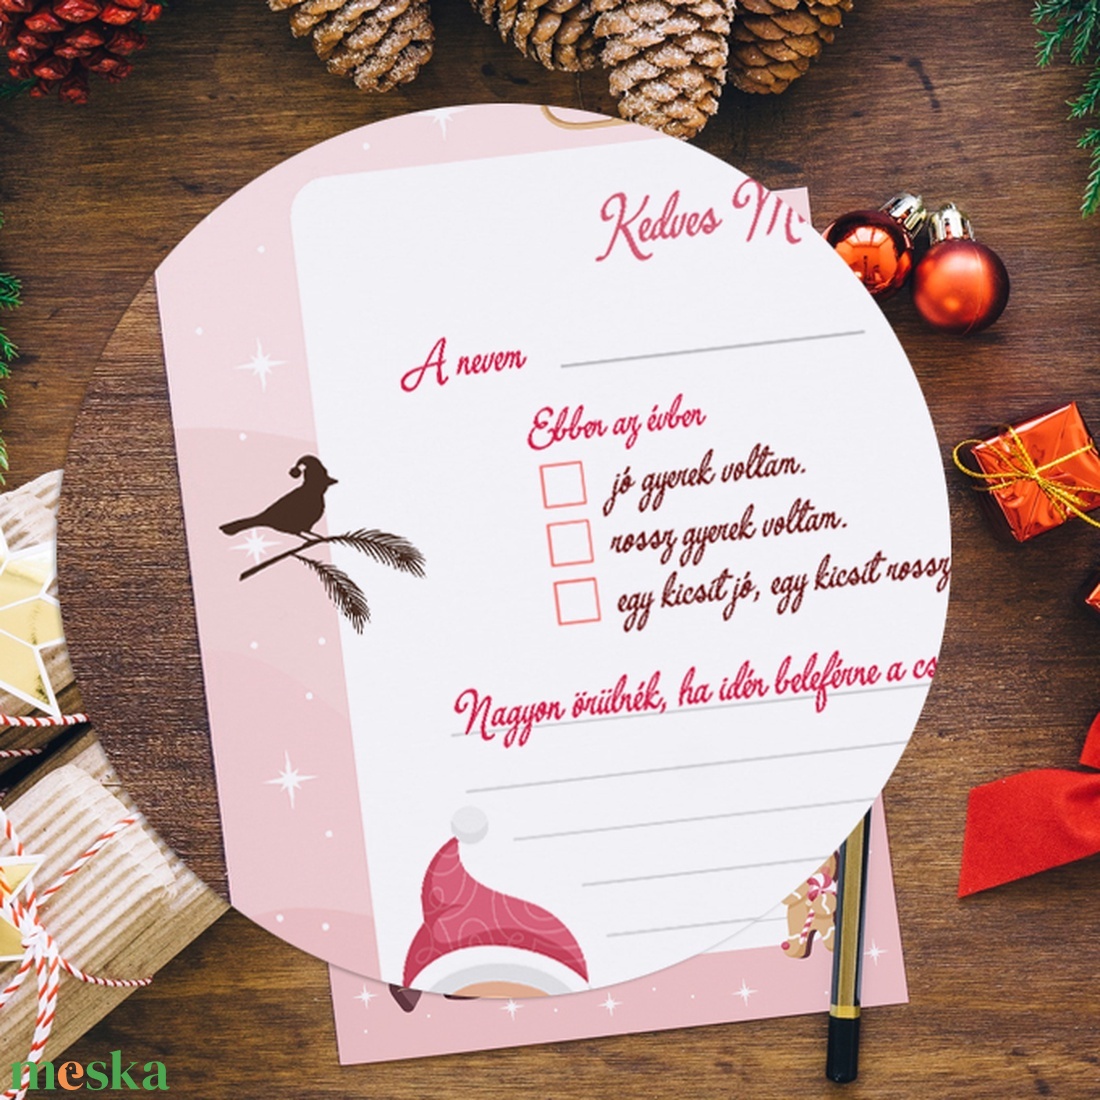 Kedves M
A nevem
Ebben az évben
jó gyerek voltam.
rossz gyerek voltam.
egy kicsit jó, egy kicsit rossz
Nagyon örülnék, ha idén beleférne a cs
meska